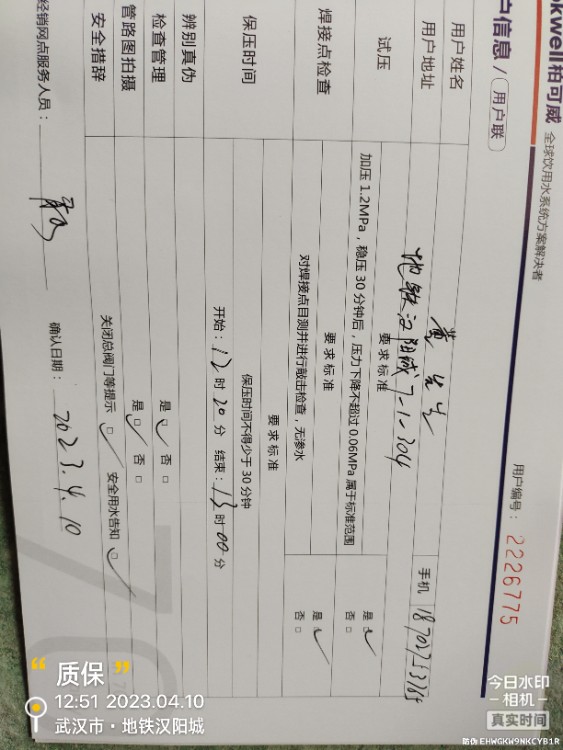 okwell柏可威 全球饮用水系统方案解决者
户信息 / 用户联
用户编号： 2226775
用户姓名 黄先生
用户地址 地铁汉阳城7-1-304 手机
试压 要求标准
加压 1.2MPa，稳压 30 分钟后，压力下降不超过 0.06MPa 属于标准范围 是 ☑ 否 □
焊接点检查 要求标准
对焊接点目测并进行敲击检查，无渗水 是 ☑ 否 □
保压时间 要求标准
保压时间不得少于 30 分钟
开始：12 时 20 分 结束：13 时 00 分
辨别真伪
检查管理 是 ☑ 否 □
管路图拍摄 是 ☑ 否 □
安全措辞 关闭总阀门等提示 ☑ 安全用水告知 ☑
经销网点服务人员： 确认日期： 2023.4.10
“质保”
12:51 2023.04.10
武汉市·地铁汉阳城
今日水印
相机
真实时间
防伪 EHWGKW9NKCYB1R